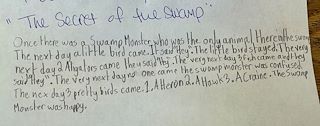 "The Secret of the Swamp"
Once there was a Swamp Monster who was the only animal there in the swamp
The next day a little bird came. It said "Hey". The little bird stayed. The very
next day 2 Aligators came they said "Hi". The very next day 3 Fish came and they
said "Hey". The very next day no one came the swamp monster was confused.
The nex day 3 pretty birds came. 1. A Heron 2. A Hawk 3. A Craine. The Swamp
Monster was happy.